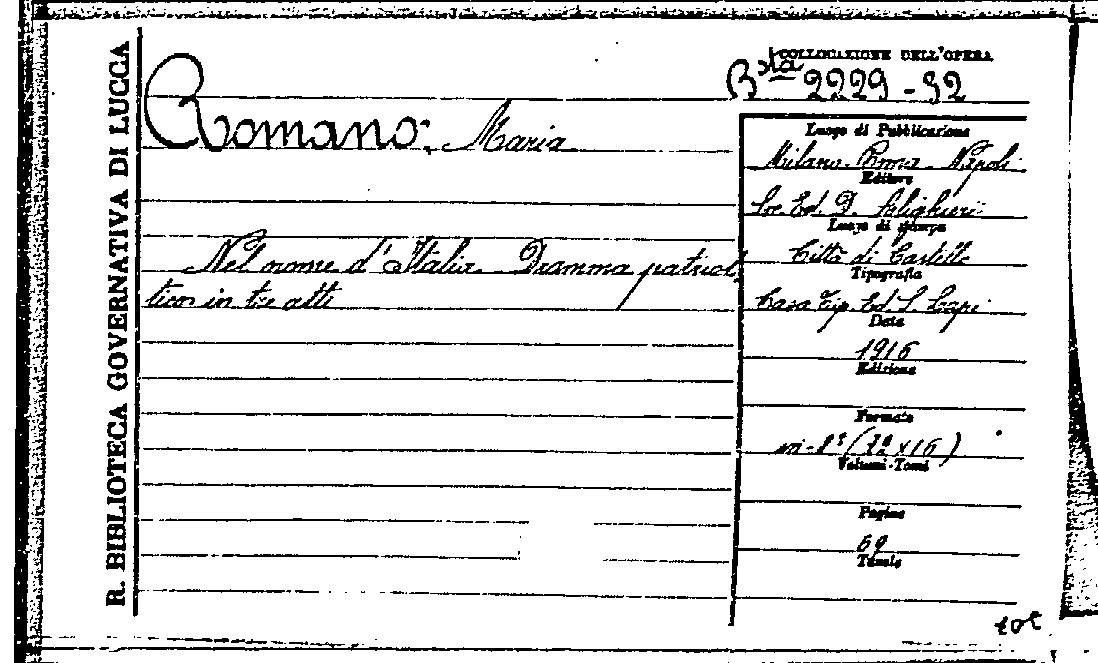 R. BIBLIOTECA GOVERNATIVA DI LUCCA
COLLOCAZIONE DELL'OPERA
Bsta 2229-32
Romano: Maria
Nel nome d'Italia. Dramma patriot
tico in tre atti
Luogo di Pubblicazione
Milano-Roma-Napoli
Editore
Soc. Ed. D. Alighieri
Luogo di stampa
Città di Castello
Tipografia
Casa Tip. Ed. S. Lapi
Data
1916
Edizione
Formato
in-8°
Volumi-Tomi
Pagine
69
Tavole